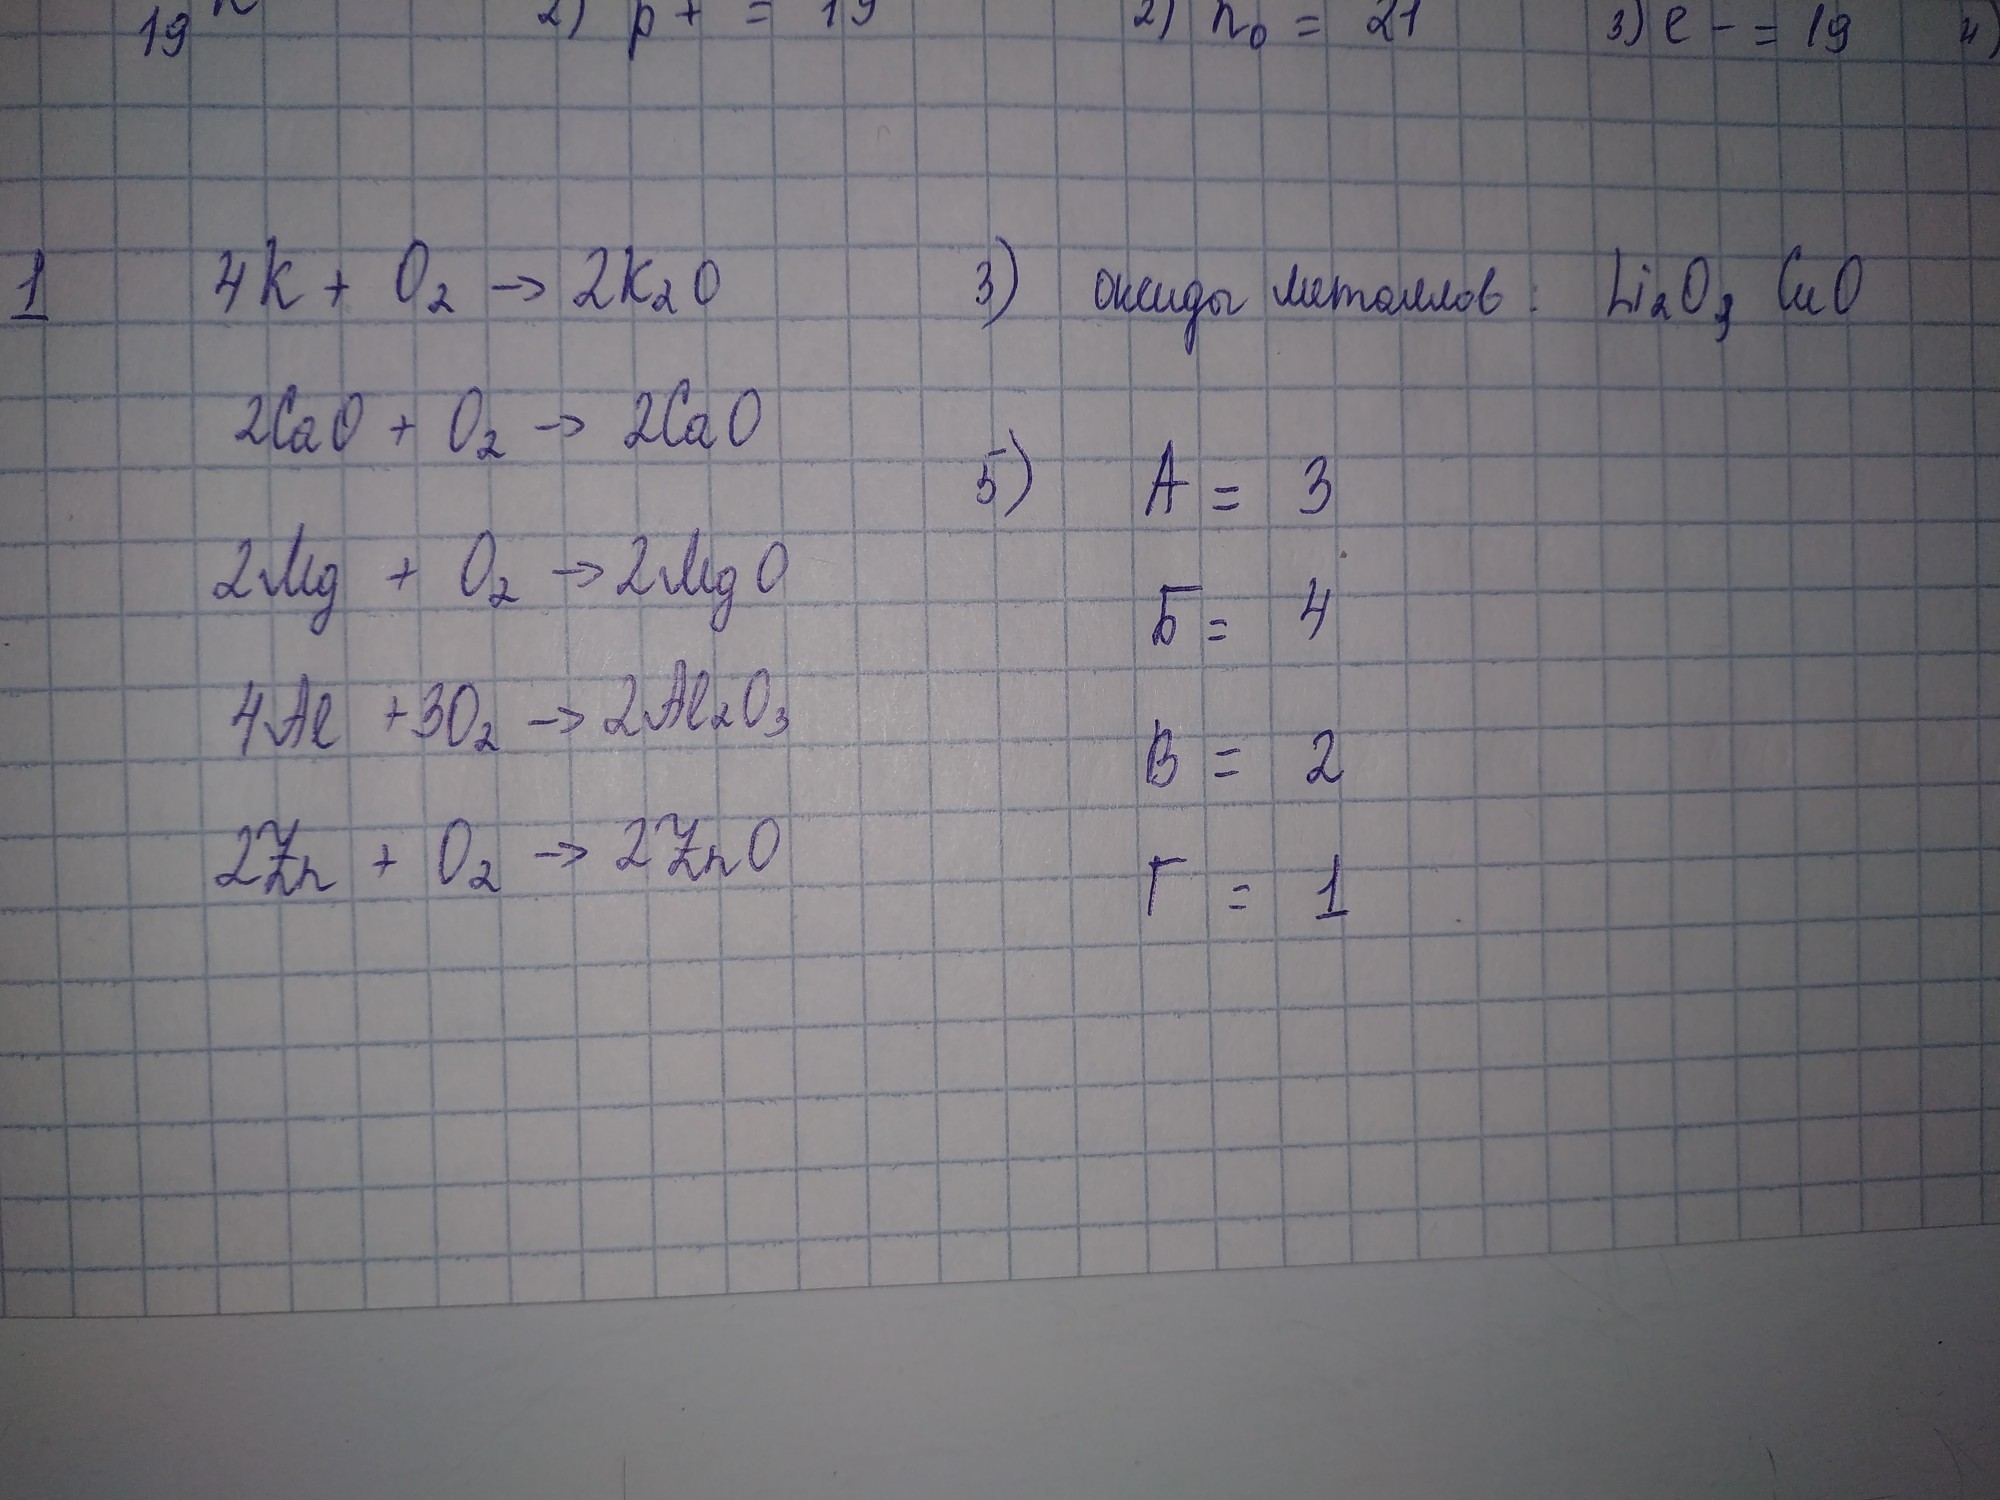 19 2) p+ = 19 2) n0 = 21 3) e- = 19 4)
1 4K + O₂ → 2K₂O
2CaO + O₂ → 2CaO
2Mg + O₂ → 2MgO
4Al + 3O₂ → 2Al₂O₃
2Zn + O₂ → 2ZnO
3) оксиды металлов: Li₂O, CuO
5) А = 3
Б = 4
В = 2
Г = 1